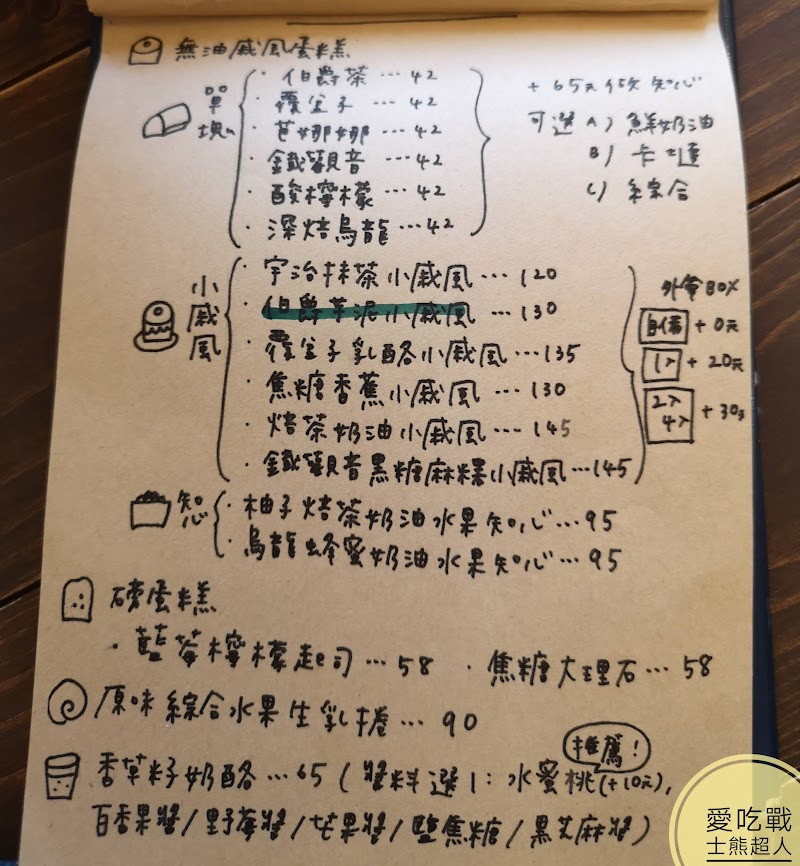 無油戚風蛋糕
單塊
・伯爵茶…42
・覆盆子…42
・芭娜娜…42
・鐵觀音…42
・酸檸檬…42
・深焙烏龍…42
+65元做知心
可選 A) 鮮奶油
B) 卡士達
C) 綜合
小戚風
・宇治抹茶小戚風…120
・伯爵芋泥小戚風…130
・覆盆子乳酪小戚風…135
・焦糖香蕉小戚風…130
・焙茶奶油小戚風…145
・鐵觀音黑糖麻糬小戚風…145
外帶BOX
自備 +0元
1入 +20元
2入 4入 +30元
知心
・柚子焙茶奶油水果知心…95
・烏龍蜂蜜奶油水果知心…95
磅蛋糕
・藍莓檸檬起司…58 ・焦糖大理石…58
原味綜合水果生乳捲…90
推薦!
香草籽奶酪…65(醬料選1:水蜜桃(+10元),
百香果醬/野莓醬/芒果醬/鹽焦糖/黑芝麻醬)
愛吃戰
士熊超人